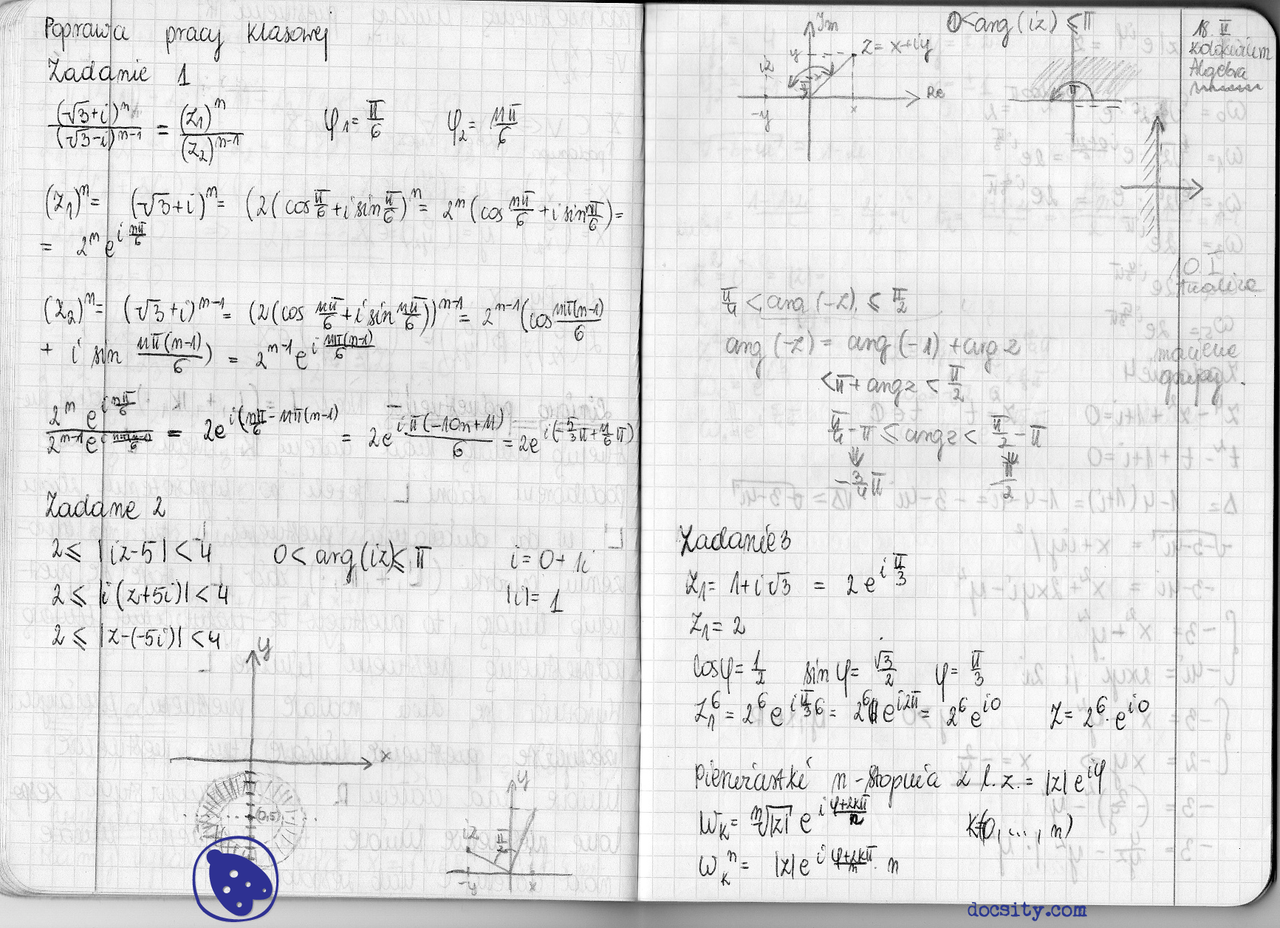 Poprawa pracy klasowej
Zadanie 1
(√3+i)^n / (√3-i)^(n-1) = (z₁)^n / (z₂)^(n-1)    φ₁ = π/6    φ₂ = 11π/6
(z₁)^n = (√3+i)^n = (2(cos π/6 + i sin π/6)^n = 2^n (cos nπ/6 + i sin nπ/6) =
= 2^n e^(i nπ/6)
(z₂)^n = (√3+i)^(n-1) = (2(cos 11π/6 + i sin 11π/6))^(n-1) = 2^(n-1) (cos 11π(n-1)/6
+ i sin 11π(n-1)/6) = 2^(n-1) e^(i 11π(n-1)/6)
2^n e^(i nπ/6) / 2^(n-1) e^(i 11π(n-1)/6) = 2e^(i(nπ/6 - 11π(n-1)) = 2e^(iπ(-10n+11)/6) = 2e^(i(-5/3π + 11/6π)
Zadane 2
2 ≤ |iz-5| < 4    0 < arg(iz) ≤ π    i = 0+1i
2 ≤ |i(z+5i)| < 4    |i| = 1
2 ≤ |z-(-5i)| < 4
y
x
(0,5)
y
iz
π/2
-y
x
Im
0 < arg(iz) ≤ π
y
z = x+iy
iz
Re
-y
x
π
18. II
kolokwium
Algebra
10. I
Analiza
π/4 < arg(-z) ≤ π/2
arg(-z) = arg(-1) + arg z
< π + arg z < π/2
π/4 - π ≤ arg z < π/2 - π
-3/4 π
π/2
Zadanie 3
z₁ = 1+i√3 = 2e^(i π/3)
z₁ = 2
cosφ = 1/2    sinφ = √3/2    φ = π/3
z₁^6 = 2^6 e^(i π/3 6) = 2^6 e^(i2π) = 2^6 e^(i0)    z = 2^6 · e^(i0)
Pierwiastki n-stopnia z l.z. = |z| e^(iφ)
w_k = ⁿ√|z| e^(i (φ+2kπ)/n)    k(0, ..., n)
w_k^n = |z| e^(i (φ+2kπ)/n · n)
docsity.com